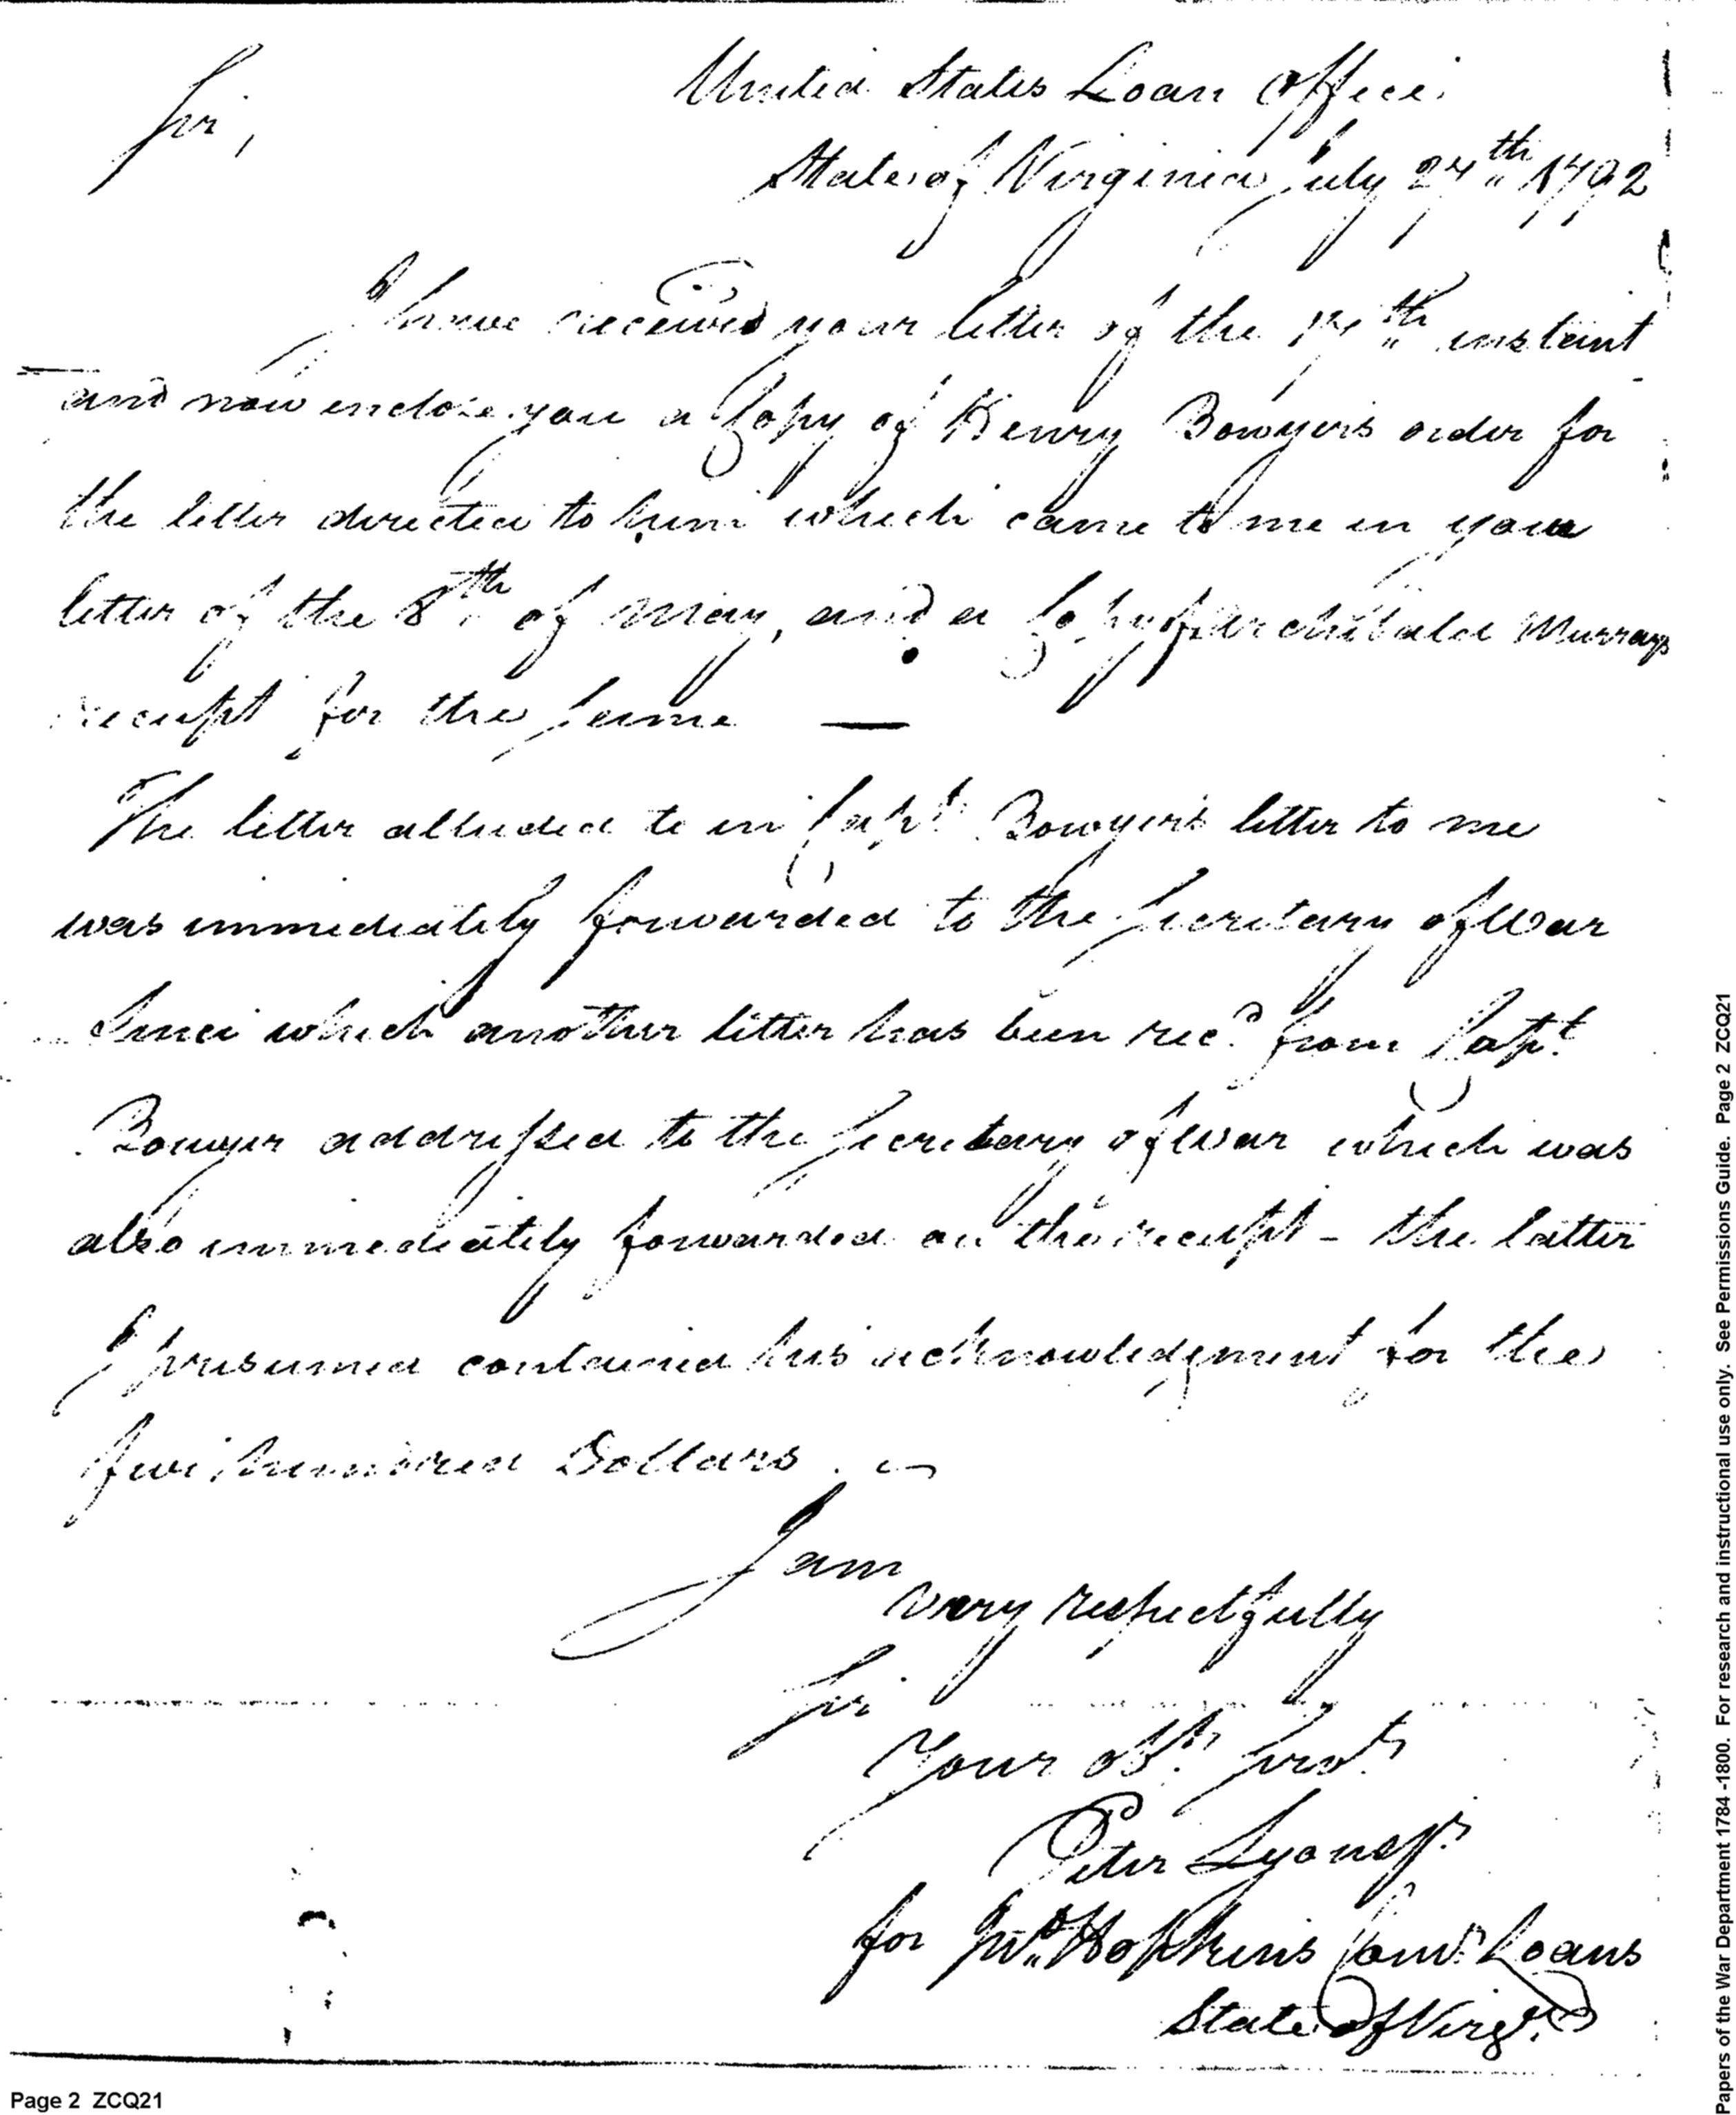 Sir,
United States Loan Office
State of Virginia July 24th 1792
I have received your letter of the 17th instant
and now enclose you a Copy of Henry Bowyers order for
the letter directed to him which came to me in your
letter of the 8th of May, and a Copy of Archibald Murrays
receipt for the same —
The letter alluded to in Capt. Bowyer's letter to me
was immediately forwarded to the Secretary of War
Since which another letter has been recd. from Capt.
Bowyer addressed to the Secretary of War which was
also immediately forwarded on the receipt - the latter
I presumed contained his acknowledgment for the
five hundred Dollars. —
I am
very respectfully
Sir
Your obt. Servt.
Peter Lyons Jr.
for Jno. Hopkins Comr. Loans
State of Virga.
Page 2 ZCQ21
Papers of the War Department 1784 -1800. For research and instructional use only. See Permissions Guide. Page 2 ZCQ21